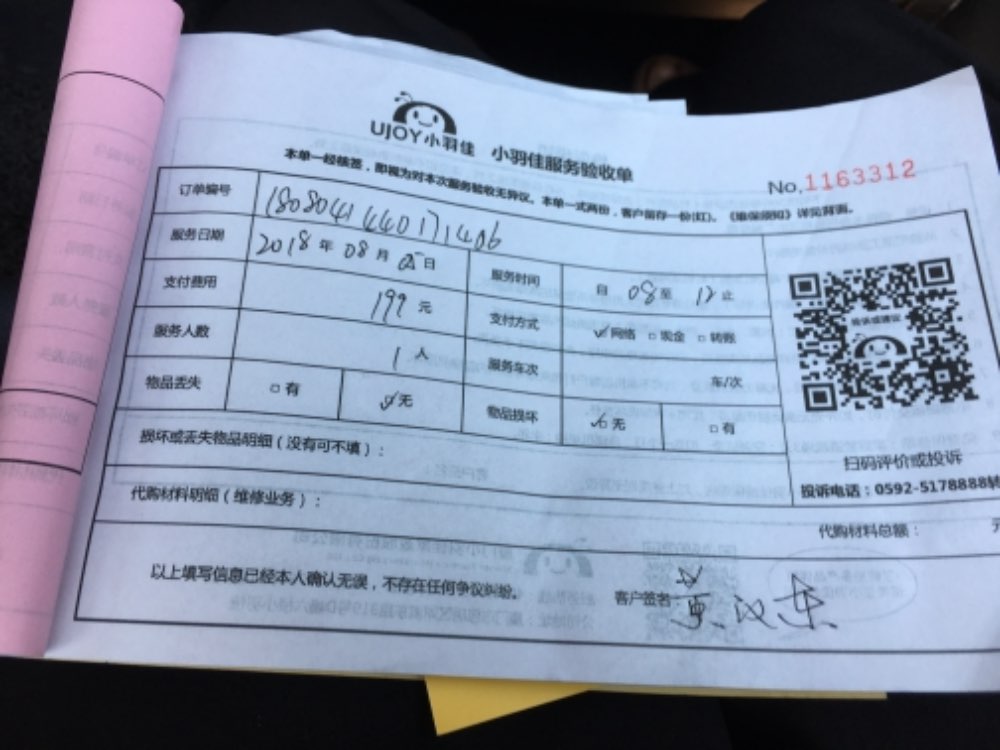 UJOY小羽佳 小羽佳服务验收单
No.1163312
本单一经核签，即视为对本次服务验收无异议。本单一式两份，客户留存一份(红)。《维保须知》详见背面。
订单编号 1808041440171406
服务日期 2018年08月05日 服务时间 自08至12止
支付费用 199元 支付方式 ☑网络 □现金 □转账
服务人数 1人 服务车次 车/次
物品丢失 □有 ☑无 物品损坏 ☑无 □有
扫码评价或投诉
投诉电话：0592-5178888转
损坏或丢失物品明细（没有可不填）：
代购材料明细（维修业务）：
代购材料总额： 元
以上填写信息已经本人确认无误，不存在任何争议纠纷。 客户签名